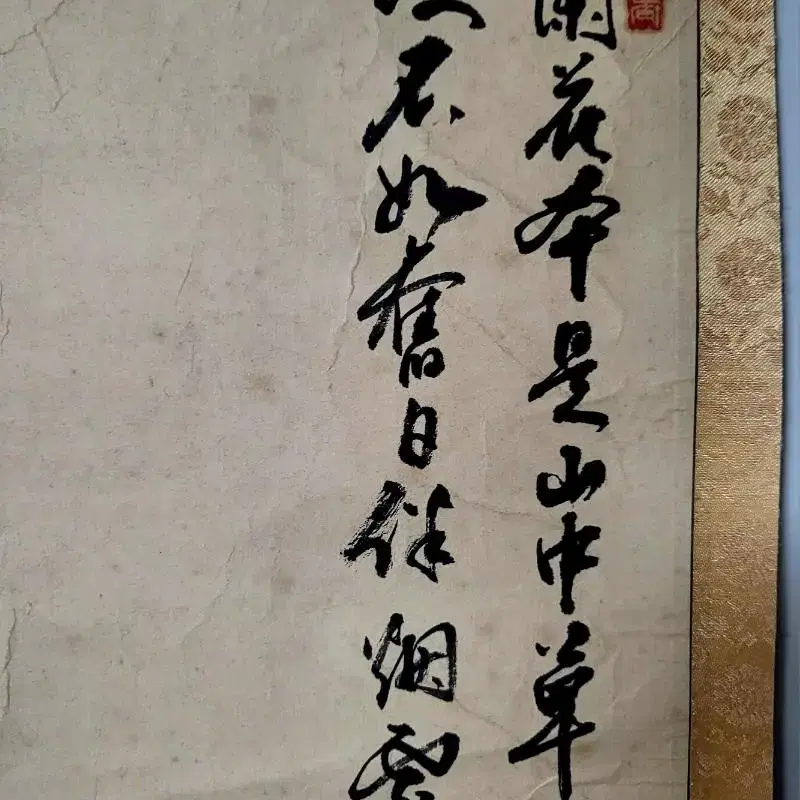 蘭花本是山中草
不如舊日伴烟